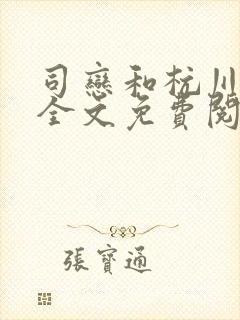 司戀和杭川
全文免費閱
張寶通